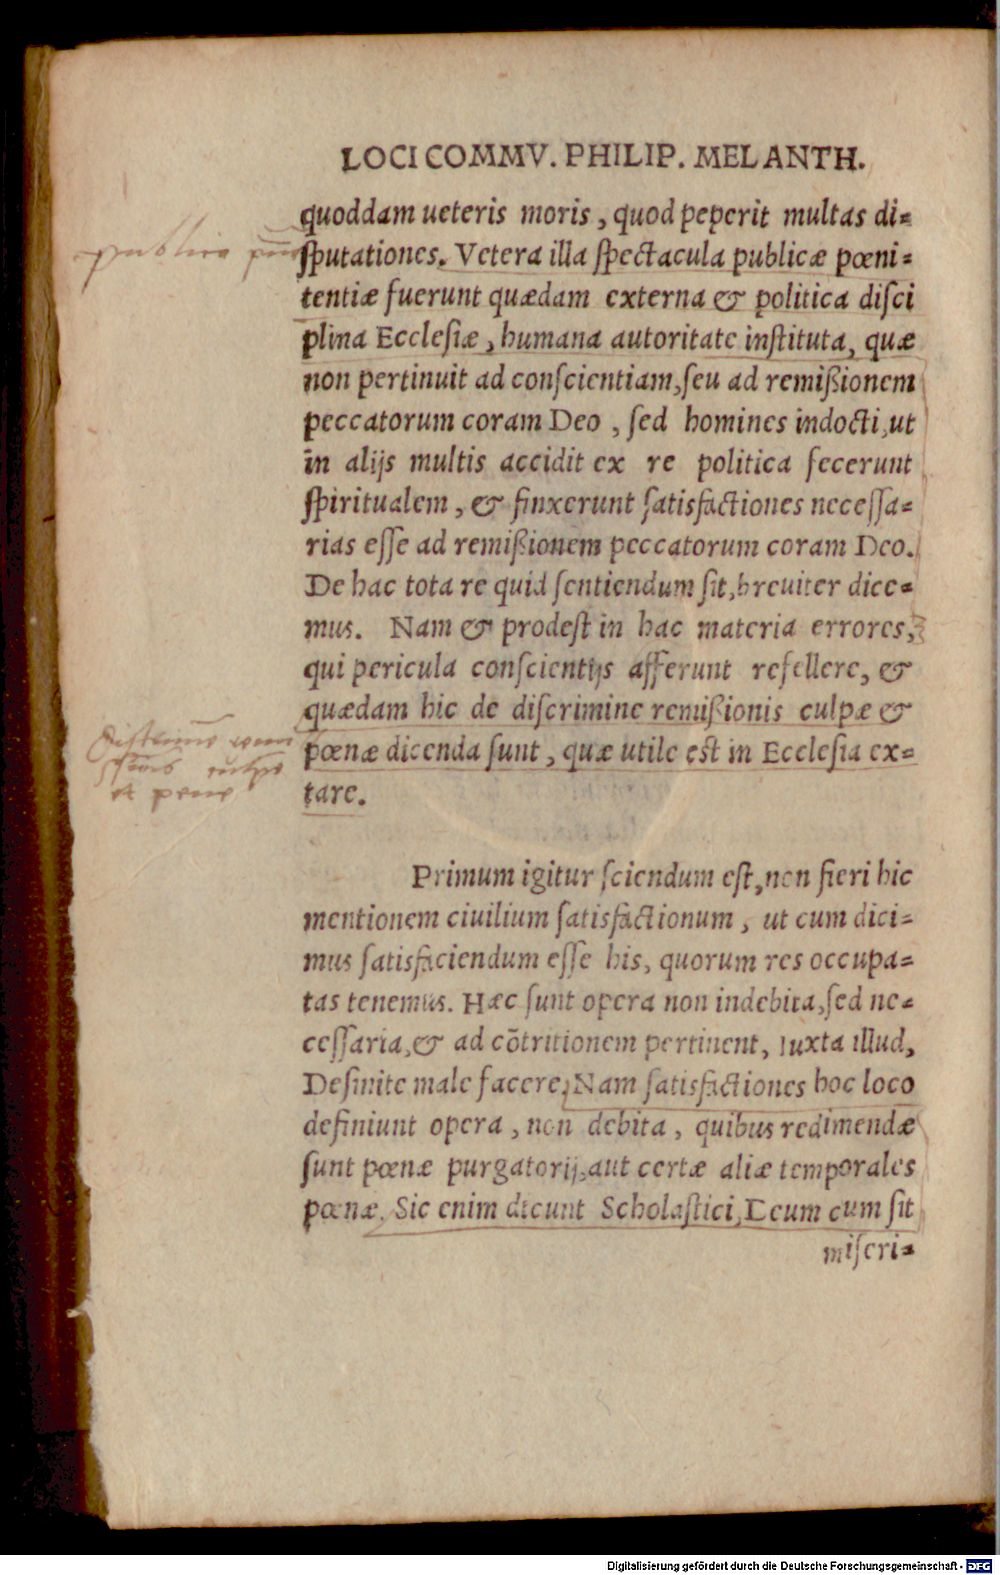 LOCI COMMV. PHILIP. MELANTH.
quoddam ueteris moris, quod peperit multas di=
publica
ſputationes. Vetera illa ſpectacula publicæ pœni=
tentiæ fuerunt quædam externa & politica diſci
plina Eccleſiæ, humana autoritate inſtituta, quæ
non pertinuit ad conſcientiam, ſeu ad remißionem
peccatorum coram Deo, ſed homines indocti, ut
in alijs multis accidit ex re politica fecerunt
ſpiritualem, & finxerunt ſatisfactiones neceſſa=
rias eſſe ad remißionem peccatorum coram Deo.
De hac tota re quid ſentiendum ſit, breuiter dice=
mus. Nam & prodeſt in hac materia errores,
qui pericula conſcientijs afferunt refellere, &
quædam hic de diſcrimine remißionis culpæ &
pœnæ dicenda ſunt, quæ utile eſt in Eccleſia ex=
et pene
tare.
Primum igitur ſciendum eſt, non fieri hic
mentionem ciuilium ſatisfactionum, ut cum dici=
mus ſatisfaciendum eſſe his, quorum res occupa=
tas tenemus. Hæc ſunt opera non indebita, ſed ne=
ceſſaria, & ad cõtritionem pertinent, iuxta illud,
Deſinite male facere. Nam ſatisfactiones hoc loco
definiunt opera, non debita, quibus redimendæ
ſunt pœnæ purgatorij, aut certæ aliæ temporales
pœnæ. Sic enim dicunt Scholaſtici, Deum cum ſit
miſeri=
Digitalisierung gefördert durch die Deutsche Forschungsgemeinschaft - DFG